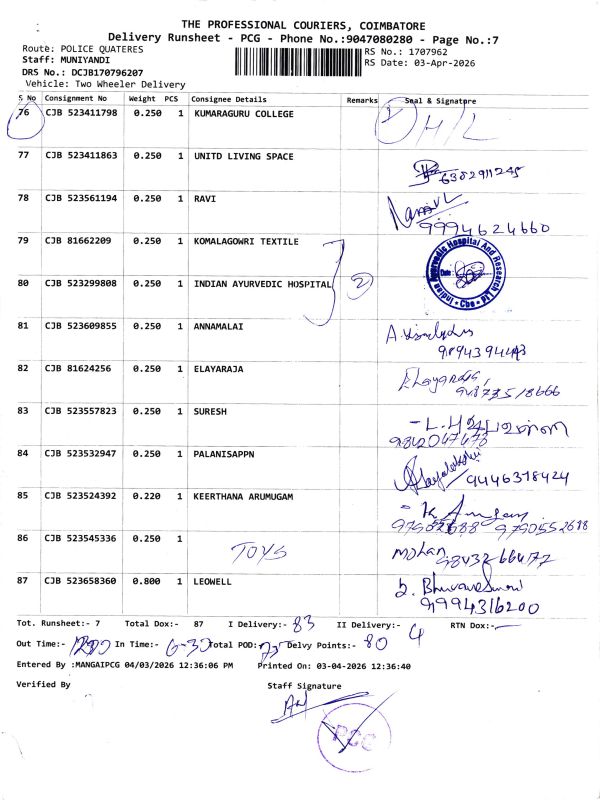 THE PROFESSIONAL COURIERS, COIMBATORE
Delivery Runsheet - PCG - Phone No.:9047080280 - Page No.:7
Route: POLICE QUATERES
RS No.: 1707962
Staff: MUNIYANDI
RS Date: 03-Apr-2026
DRS No.: DCJB170796207
Vehicle: Two Wheeler Delivery
S No Consignment No Weight PCS Consignee Details Remarks Seal & Signature
76 CJB 523411798 0.250 1 KUMARAGURU COLLEGE 1 H/L
77 CJB 523411863 0.250 1 UNITD LIVING SPACE 6382911245
78 CJB 523561194 0.250 1 RAVI
9994624660
79 CJB 81662209 0.250 1 KOMALAGOWRI TEXTILE
80 CJB 523299808 0.250 1 INDIAN AYURVEDIC HOSPITAL 2
Ayurvedic Hospital And Research
81 CJB 523609855 0.250 1 ANNAMALAI
82 CJB 81624256 0.250 1 ELAYARAJA
83 CJB 523557823 0.250 1 SURESH
84 CJB 523532947 0.250 1 PALANISAPPN
9446318424
85 CJB 523524392 0.220 1 KEERTHANA ARUMUGAM
9790552618
86 CJB 523545336 0.250 1 TOYS Mohan
87 CJB 523658360 0.800 1 LEOWELL
9994316200
Tot. Runsheet:- 7 Total Dox:- 87 I Delivery:- 83 II Delivery:- 4 RTN Dox:-
Out Time:- In Time:- 6-30 Total POD: 75 Delvy Points:- 80
Entered By :MANGAIPCG 04/03/2026 12:36:06 PM Printed On: 03-04-2026 12:36:40
Verified By Staff Signature
PCG